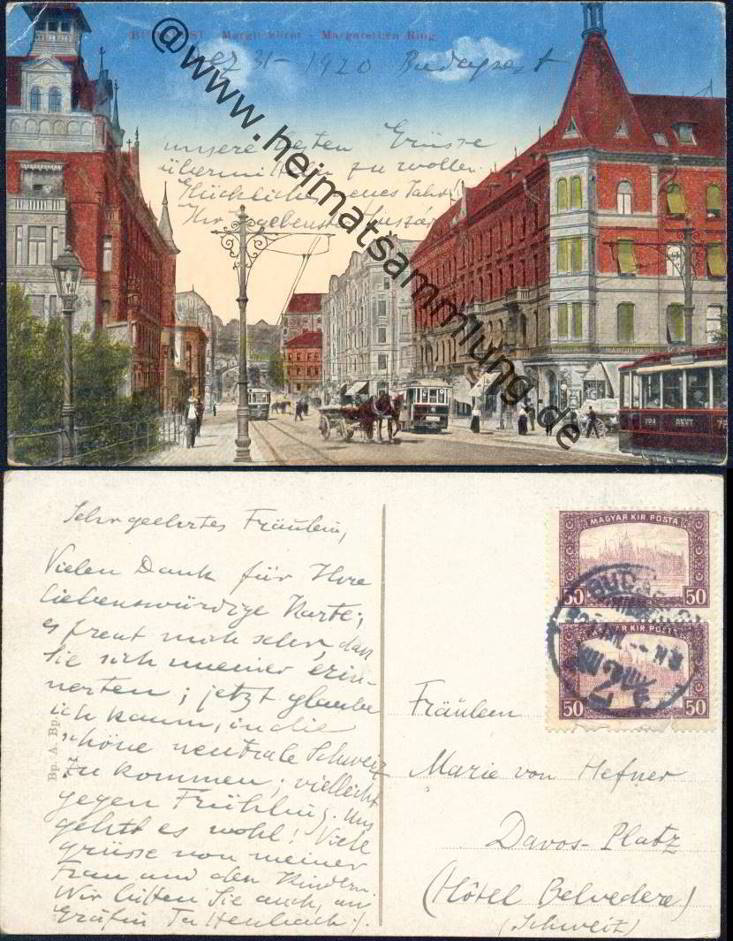 BUDAPEST. Margit körut - Margarethen Ring
Dez 31 - 1920 Budapest
unsere besten Grüsse
übermitteln zu wollen.
Glückliches neues Jahr!
Ihr ergebenster
@www.heimatsammlung.de
Sehr geehrtes Fräulein,
Vielen Dank für Ihre
liebenswürdige Karte;
es freut mich sehr, dass
Sie sich meiner erin-
nerten; jetzt glaube
ich kaum, in die
schöne neutrale Schweiz
zu kommen; vielleicht
gegen Frühling. Uns
geht es wohl! Viele
Grüsse von meiner
Frau und den Kindern.
Wir bitten Sie auch, an
Gräfin
Bp. A. Bp.
MAGYAR KIR. POSTA
50 50
MAGYAR KIR. POSTA
50 50
BUDAPEST
Fräulein
Marie von Hefner
Davos-Platz
(Hôtel Belvedere)
(Schweiz)
BKVT